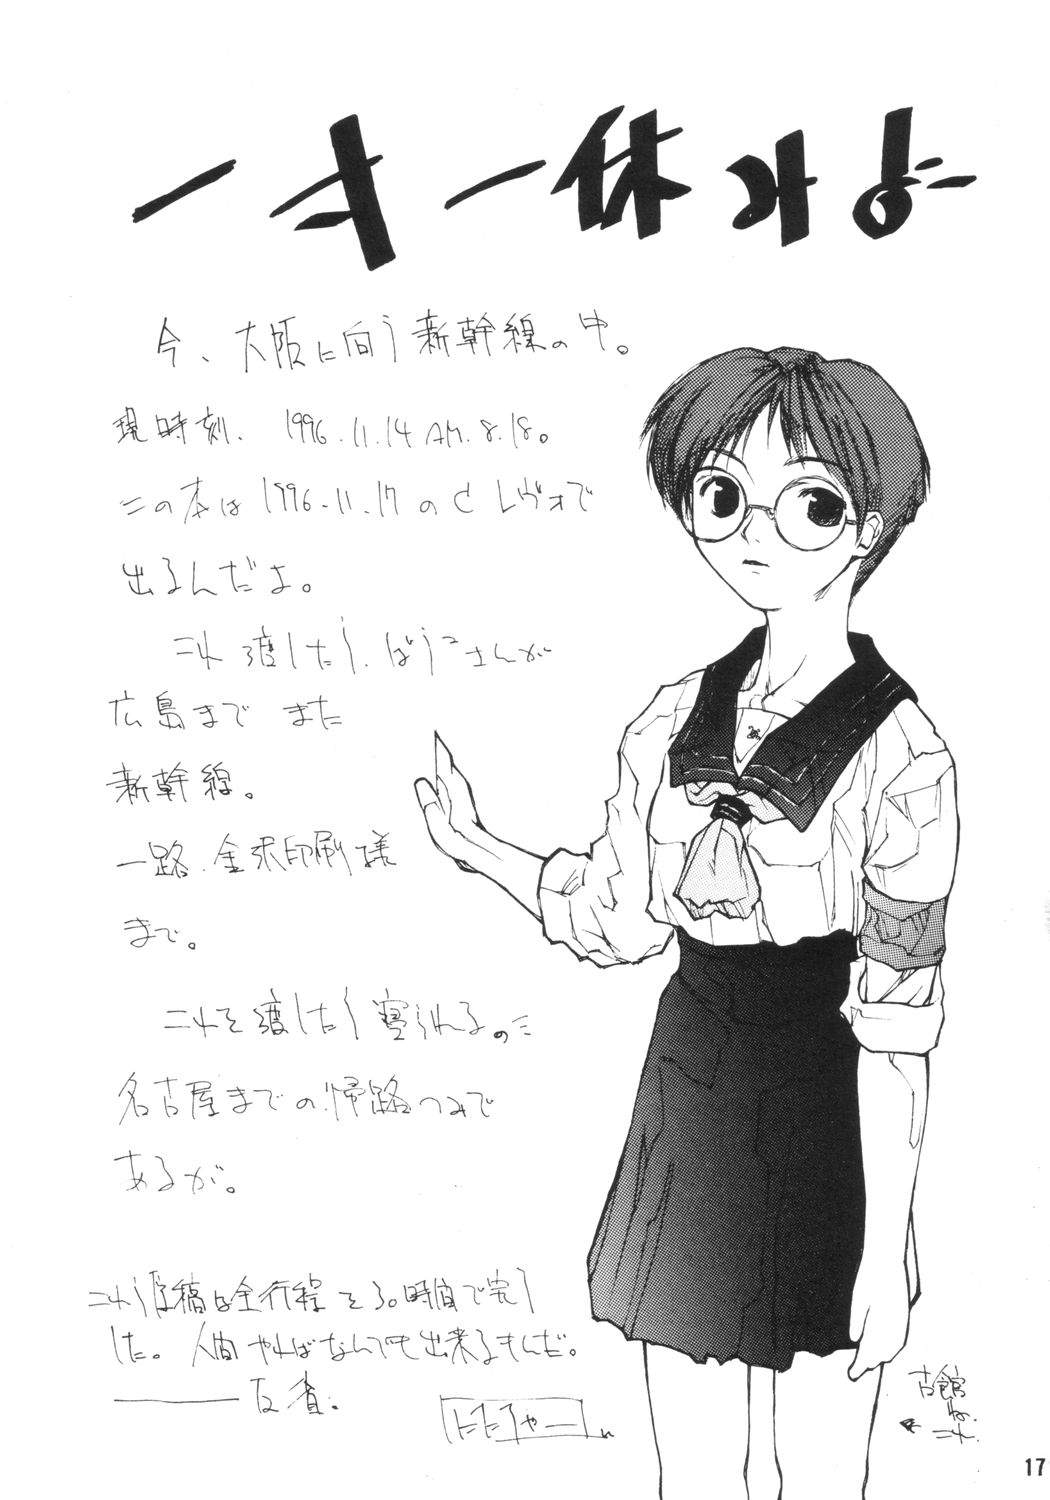 今、大阪に向う新幹線の中。
現時刻、1996.11.14 AM.8.18。
この本は1996.11.17のCレヴォで
出るんだよ。
これ渡したら、ぼうごさんが
広島まで また
新幹線。
一路、金沢印刷様
まで。
これを渡したら寝られるのに
名古屋までの帰路つみで
あるが。
これら原稿は全行程を30時間で完了
した。人間やればなんでも出来るもんだ。
反省。
古館
これ
17